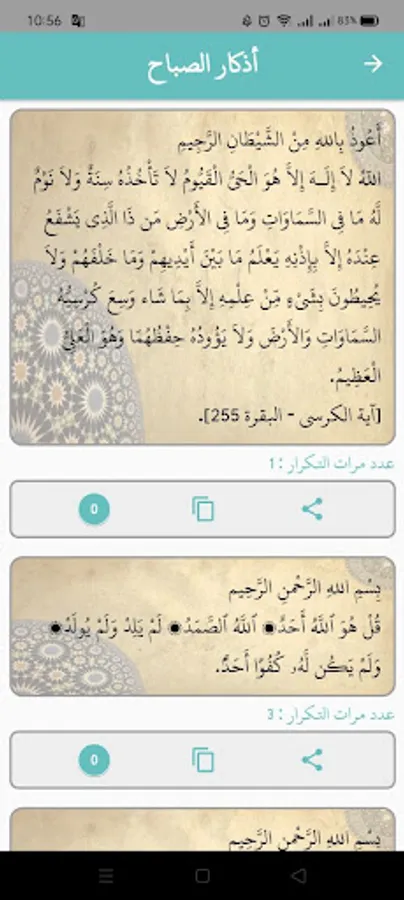 10:56
83%
أذكار الصباح
أَعُوذُ بِاللهِ مِنْ الشَّيْطَانِ الرَّجِيمِ
اللّهُ لاَ إِلَـهَ إِلاَّ هُوَ الْحَيُّ الْقَيُّومُ لاَ تَأْخُذُهُ سِنَةٌ وَلاَ نَوْمٌ
لَّهُ مَا فِي السَّمَاوَاتِ وَمَا فِي الأَرْضِ مَن ذَا الَّذِي يَشْفَعُ
عِنْدَهُ إِلاَّ بِإِذْنِهِ يَعْلَمُ مَا بَيْنَ أَيْدِيهِمْ وَمَا خَلْفَهُمْ وَلاَ
يُحِيطُونَ بِشَيْءٍ مِّنْ عِلْمِهِ إِلاَّ بِمَا شَاء وَسِعَ كُرْسِيُّهُ
السَّمَاوَاتِ وَالأَرْضَ وَلاَ يَؤُودُهُ حِفْظُهُمَا وَهُوَ الْعَلِيُّ
الْعَظِيمُ.
[آية الكرسى - البقرة 255].
عدد مرات التكرار : 1
0
بِسْمِ اللهِ الرَّحْمنِ الرَّحِيم
قُلْ هُوَ ٱللَّهُ أَحَدٌ● ٱللَّهُ ٱلصَّمَدُ● لَمْ يَلِدْ وَلَمْ يُولَدْ●
وَلَمْ يَكُن لَّهُۥ كُفُوًا أَحَدٌۢ.
عدد مرات التكرار : 3
0
بِسْمِ اللهِ الرَّحْمنِ الرَّحِيم